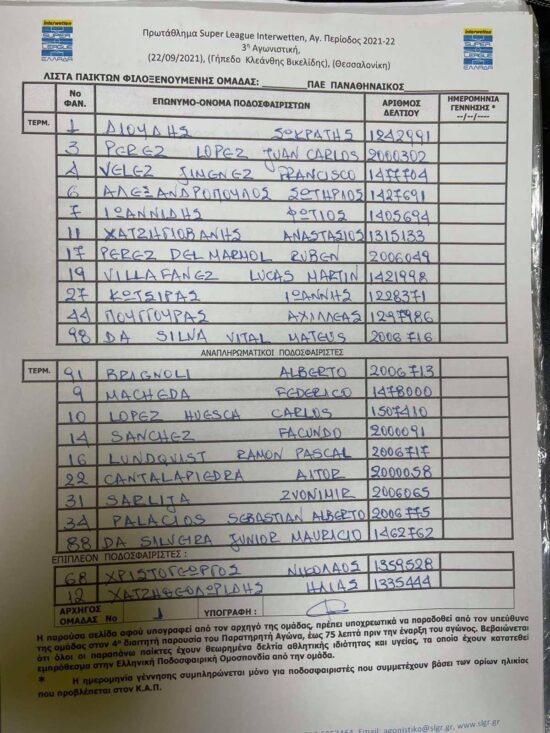 Interwetten
SUPER
LEAGUE
ΕΛΛΑΔΑ
Πρωτάθλημα Super League Interwetten, Αγ. Περίοδος 2021-22
3η Αγωνιστική,
(22/09/2021), (Γήπεδο Κλεάνθης Βικελίδης), (Θεσσαλονίκη)
Interwetten
SUPER
LEAGUE
ΕΛΛΑΔΑ
ΛΙΣΤΑ ΠΑΙΚΤΩΝ ΦΙΛΟΞΕΝΟΥΜΕΝΗΣ ΟΜΑΔΑΣ: ΠΑΕ ΠΑΝΑΘΗΝΑΪΚΟΣ
Νο ΦΑΝ. ΕΠΩΝΥΜΟ-ΟΝΟΜΑ ΠΟΔΟΣΦΑΙΡΙΣΤΩΝ ΑΡΙΘΜΟΣ ΔΕΛΤΙΟΥ ΗΜΕΡΟΜΗΝΙΑ ΓΕΝΝΗΣΗΣ * --/--/----
ΤΕΡΜ. 1 ΔΙΟΥΔΗΣ ΣΩΚΡΑΤΗΣ 1242991
3 PEREZ LOPEZ JUAN CARLOS 2000302
4 VELEZ JIMENEZ FRANCISCO 1477704
6 ΑΛΕΞΑΝΔΡΟΠΟΥΛΟΣ ΣΩΤΗΡΙΟΣ 1427691
7 ΙΩΑΝΝΙΔΗΣ ΦΩΤΙΟΣ 1405694
11 ΧΑΤΖΗΓΙΟΒΑΝΗΣ ΑΝΑΣΤΑΣΙΟΣ 1315133
17 PEREZ DEL MARMOL RUBEN 2006049
19 VILLAFANEZ LUCAS MARTIN 1421998
27 ΚΩΤΣΙΡΑΣ ΙΩΑΝΝΗΣ 1228371
44 ΠΟΥΓΓΟΥΡΑΣ ΑΧΙΛΛΕΑΣ 1297986
98 DA SILVA VITAL MATEUS 2006716
ΑΝΑΠΛΗΡΩΜΑΤΙΚΟΙ ΠΟΔΟΣΦΑΙΡΙΣΤΕΣ
ΤΕΡΜ. 91 BRIGNOLI ALBERTO 2006713
9 MACHEDA FEDERICO 1478000
10 LOPEZ HUESCA CARLOS 1507410
14 SANCHEZ FACUNDO 2000091
16 LUNDQVIST RAMON PASCAL 2006717
22 CANTALAPIEDRA AITOR 2000058
31 SARLIJA ZVONIMIR 2006065
34 PALACIOS SEBASTIAN ALBERTO 2006775
88 DA SILVEIRA JUNIOR MAURICIO 1462762
ΕΠΙΠΛΕΟΝ ΠΟΔΟΣΦΑΙΡΙΣΤΕΣ :
68 ΧΡΙΣΤΟΓΕΩΡΓΟΣ ΝΙΚΟΛΑΟΣ 1359528
12 ΧΑΤΖΗΘΕΟΔΩΡΙΔΗΣ ΗΛΙΑΣ 1335444
ΑΡΧΗΓΟΣ ΟΜΑΔΑΣ Νο 1 ΥΠΟΓΡΑΦΗ :
Η παρούσα σελίδα αφού υπογραφεί από τον αρχηγό της ομάδας, πρέπει υποχρεωτικά να παραδοθεί από τον υπεύθυνο
της ομάδας στον 4ο διαιτητή παρουσία του Παρατηρητή Αγώνα, έως 75 λεπτά πριν την έναρξη του αγώνος. Βεβαιώνεται
ότι όλοι οι παραπάνω παίκτες έχουν θεωρημένα δελτία αθλητικής ιδιότητας και υγείας, τα οποία έχουν κατατεθεί
εμπρόθεσμα στην Ελληνική Ποδοσφαιρική Ομοσπονδία από την ομάδα.
* Η ημερομηνία γέννησης συμπληρώνεται μόνο για ποδοσφαιριστές που συμμετέχουν βάσει των ορίων ηλικίας
που προβλέπεται στον Κ.Α.Π.
Email: agonistiko@slgr.gr, www.slgr.gr